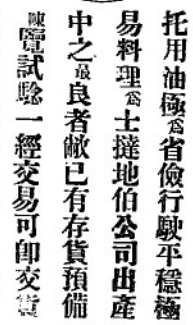 托用油極爲省儉行駛平穩極
易料理爲士撻地伯公司出產
中之最良者敝已有存貨預備
陳覽試騐一經交易可卽交貨